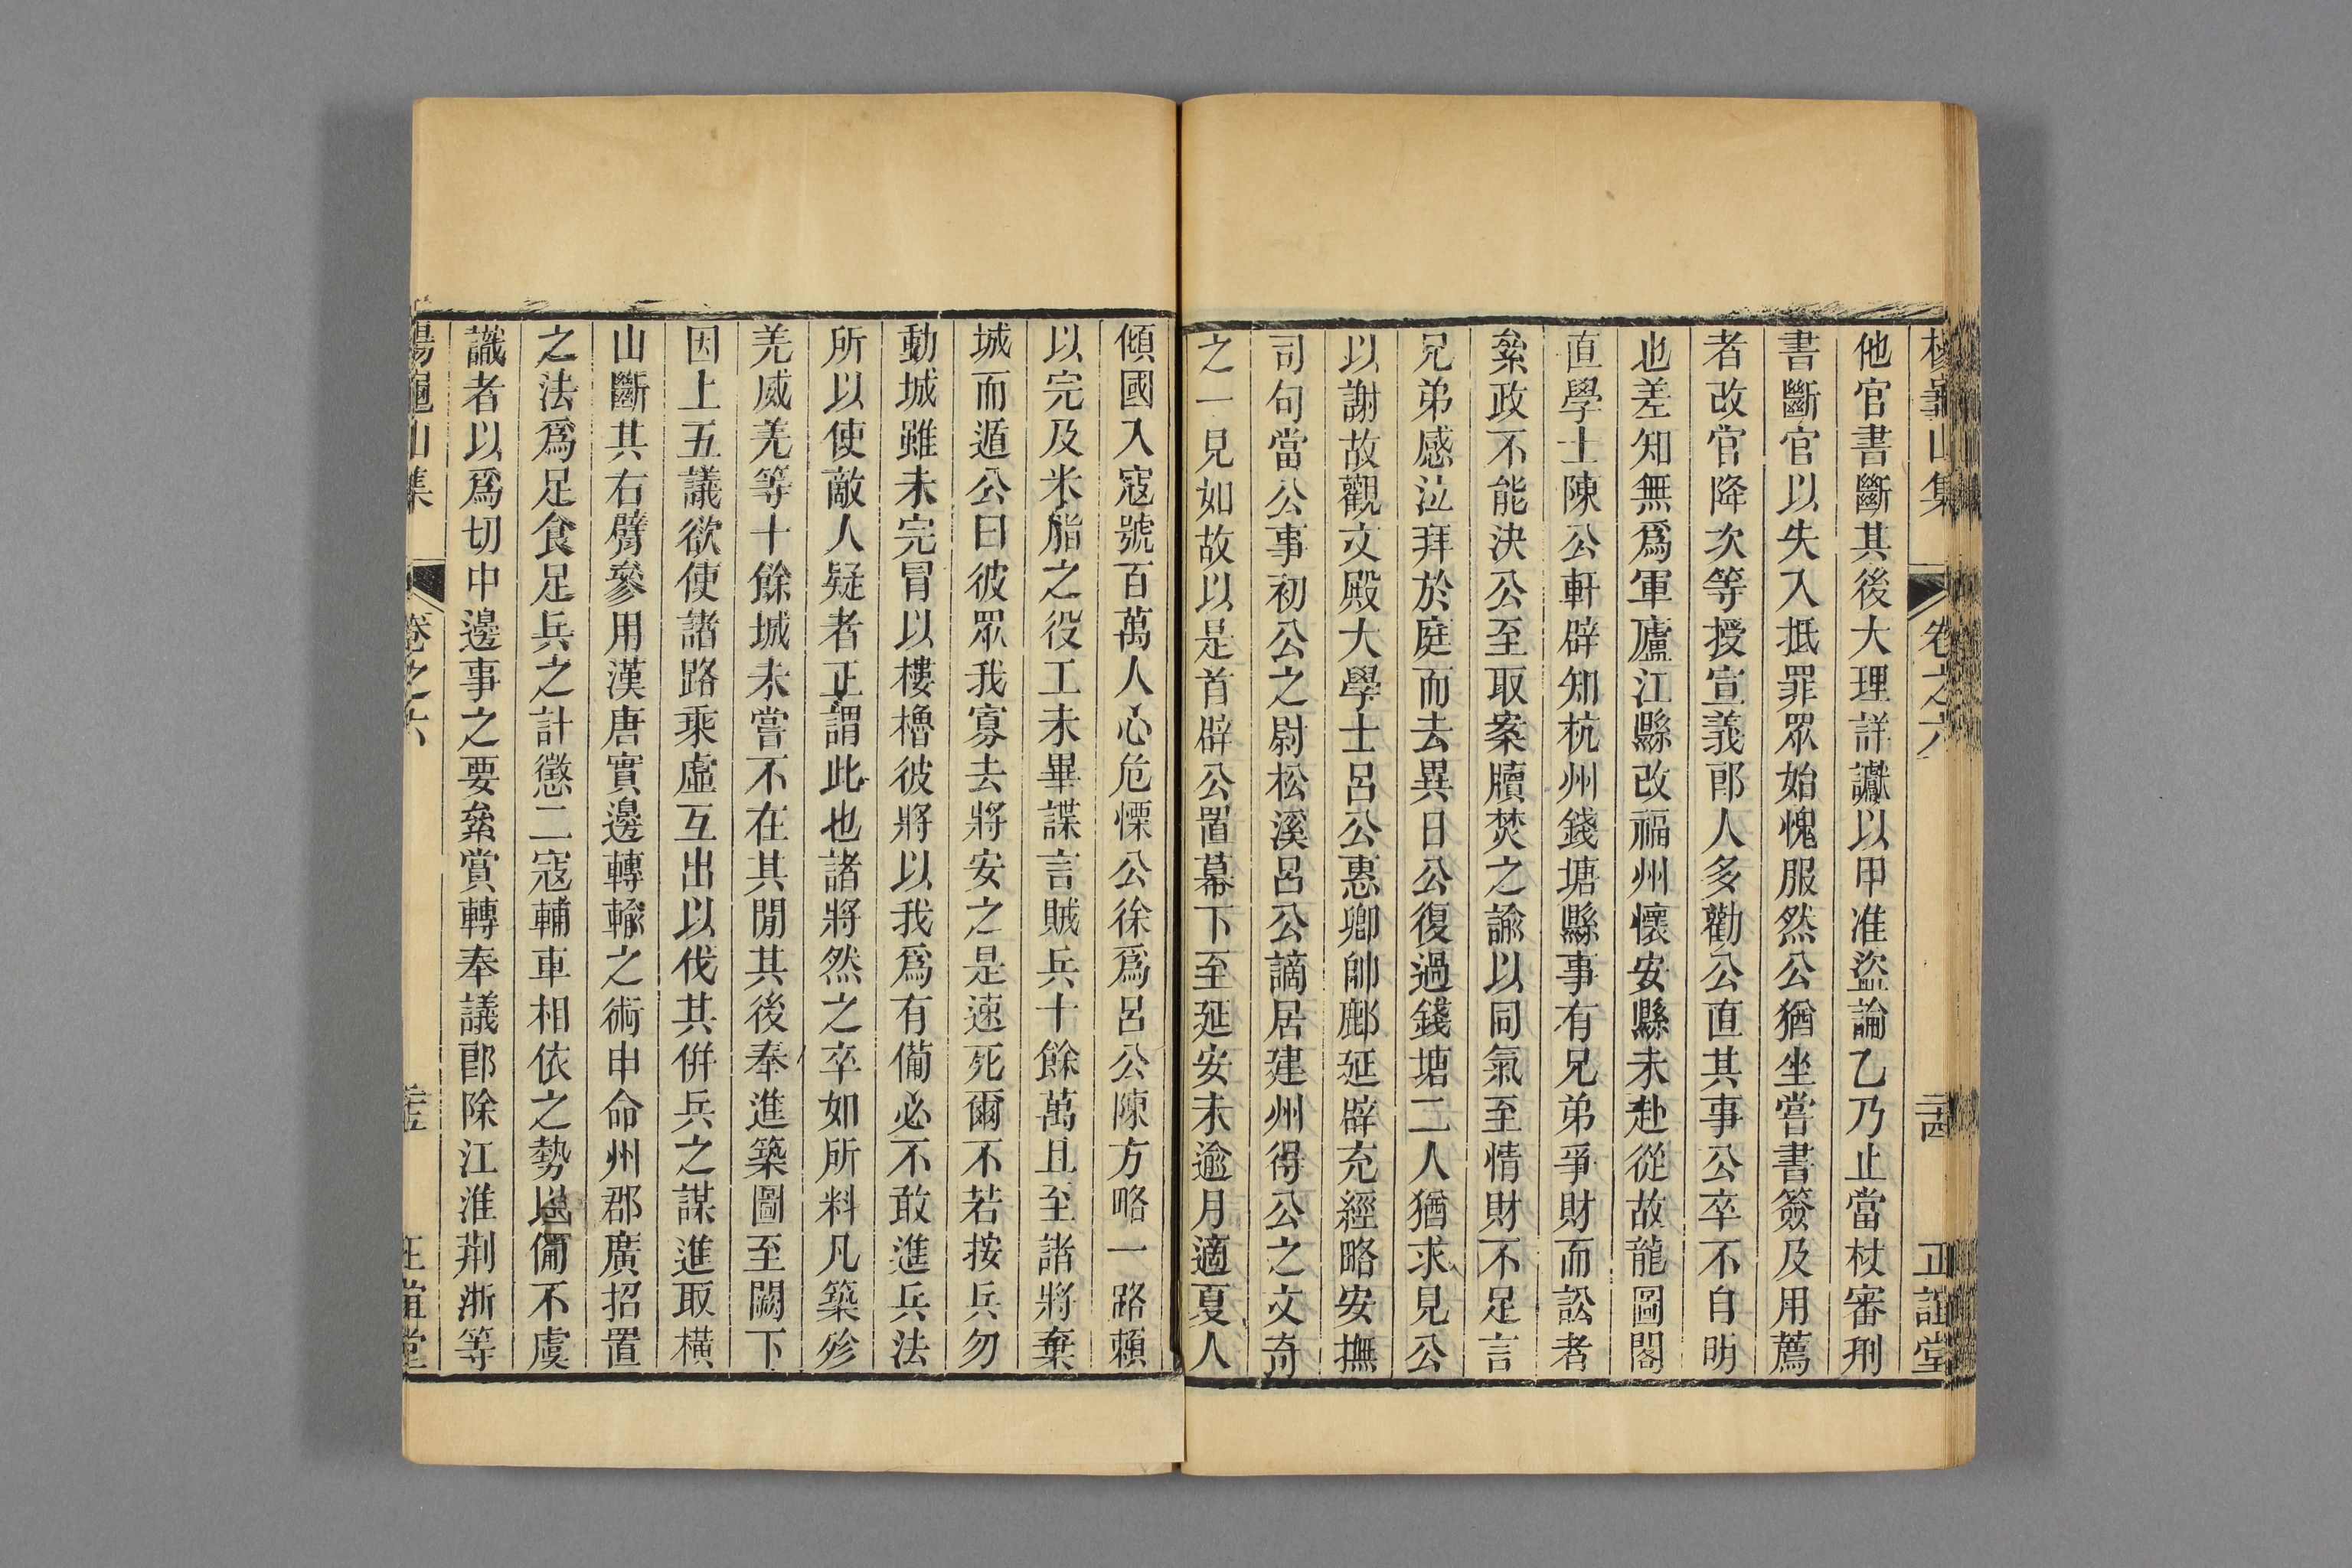 楊龜山集 卷之六 二十四 正誼堂
他官書斷其後大理詳讞以甲准盜論乙乃止當杖審刑
書斷官以失入抵罪眾始愧服然公猶坐嘗書簽及用薦
者改官降次等授宣義郎人多勸公直其事公卒不自明
也差知無爲軍廬江縣改福州懷安縣未赴從故龍圖閣
直學士陳公軒辟知杭州錢塘縣事有兄弟爭財而訟者
絫政不能決公至取案牘焚之諭以同氣至情財不足言
兄弟感泣拜於庭而去異日公復過錢塘二人猶求見公
以謝故觀文殿大學士呂公惠卿帥鄜延辟充經略安撫
司句當公事初公之尉松溪呂公謫居建州得公之文奇
之一見如故以是首辟公置幕下至延安未逾月適夏人
傾國入寇號百萬人心危慄公徐爲呂公陳方略一路賴
以完及米脂之役工未畢諜言賊兵十餘萬且至諸將棄
城而遁公曰彼眾我寡去將安之是速死爾不若按兵勿
動城雖未完冒以樓櫓彼將以我爲有備必不敢進兵法
所以使敵人疑者正謂此也諸將然之卒如所料凡築殄
羌威羌等十餘城未嘗不在其閒其後奉進築圖至闕下
因上五議欲使諸路乘虛互出以伐其併兵之謀進取橫
山斷其右臂參用漢唐實邊轉輸之術申命州郡廣招置
之法爲足食足兵之計懲二寇輔車相依之勢以備不虞
識者以爲切中邊事之要絫賞轉奉議郎除江淮荆浙等
楊龜山集 卷之六 二十五 正誼堂